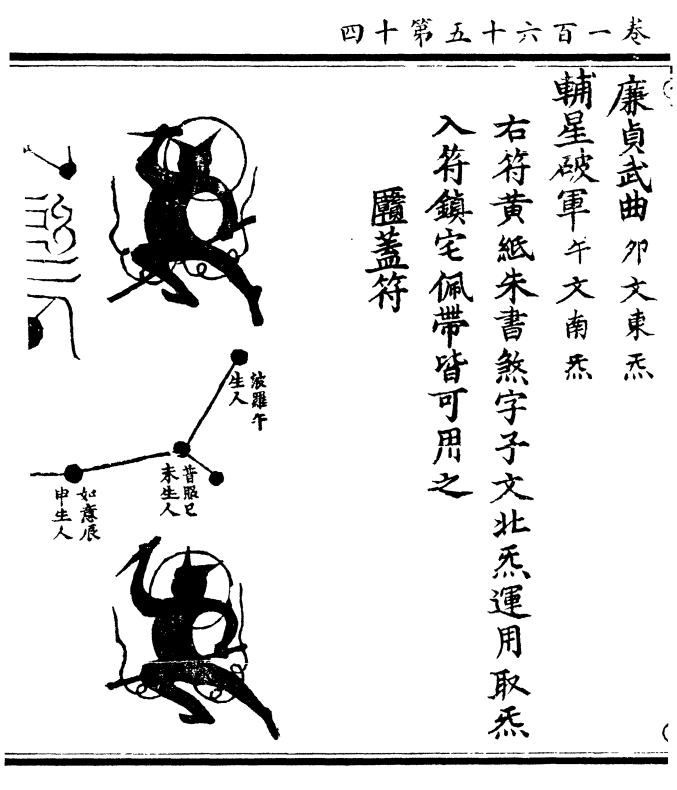 卷一百六十五第十四
廉貞武曲卯文東炁
輔星破軍午文南炁
右符黃紙朱書煞字子文北炁運用取炁
入符鎮宅佩帶皆可用之
蓋符
波羅午
生人
普照巳
未生人
如意辰
申生人